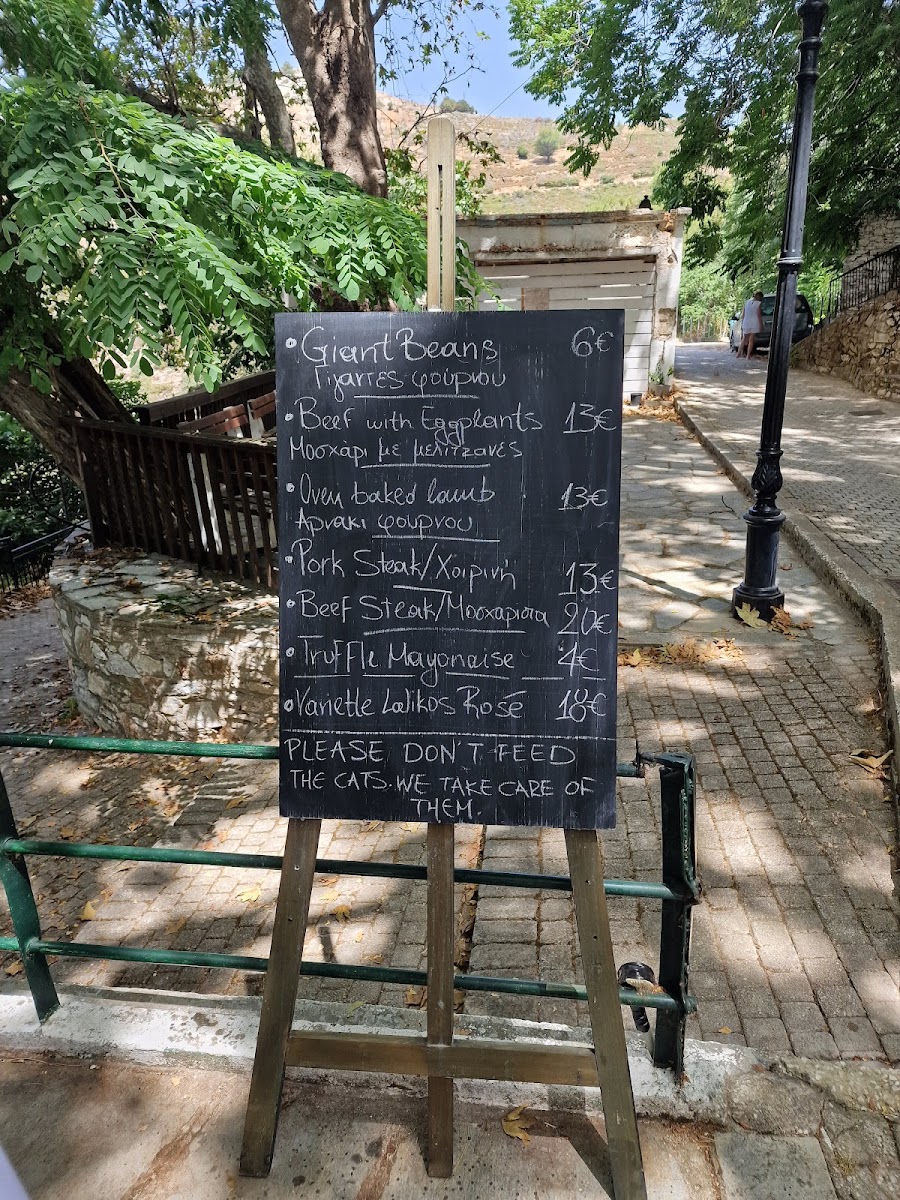 Giant Beans 6€
Γίγαντες φούρνου
Beef with Eggplants 13€
Μοσχάρι με μελιτζάνες
Oven baked lamb 13€
Αρνάκι φούρνου
Pork Steak/Χοιρινή 13€
Beef Steak/Μοσχαρίσια 20€
Truffle Mayonaise 4€
Variette Lalikos Rosé 18€
PLEASE DON'T FEED
THE CATS. WE TAKE CARE OF
THEM.